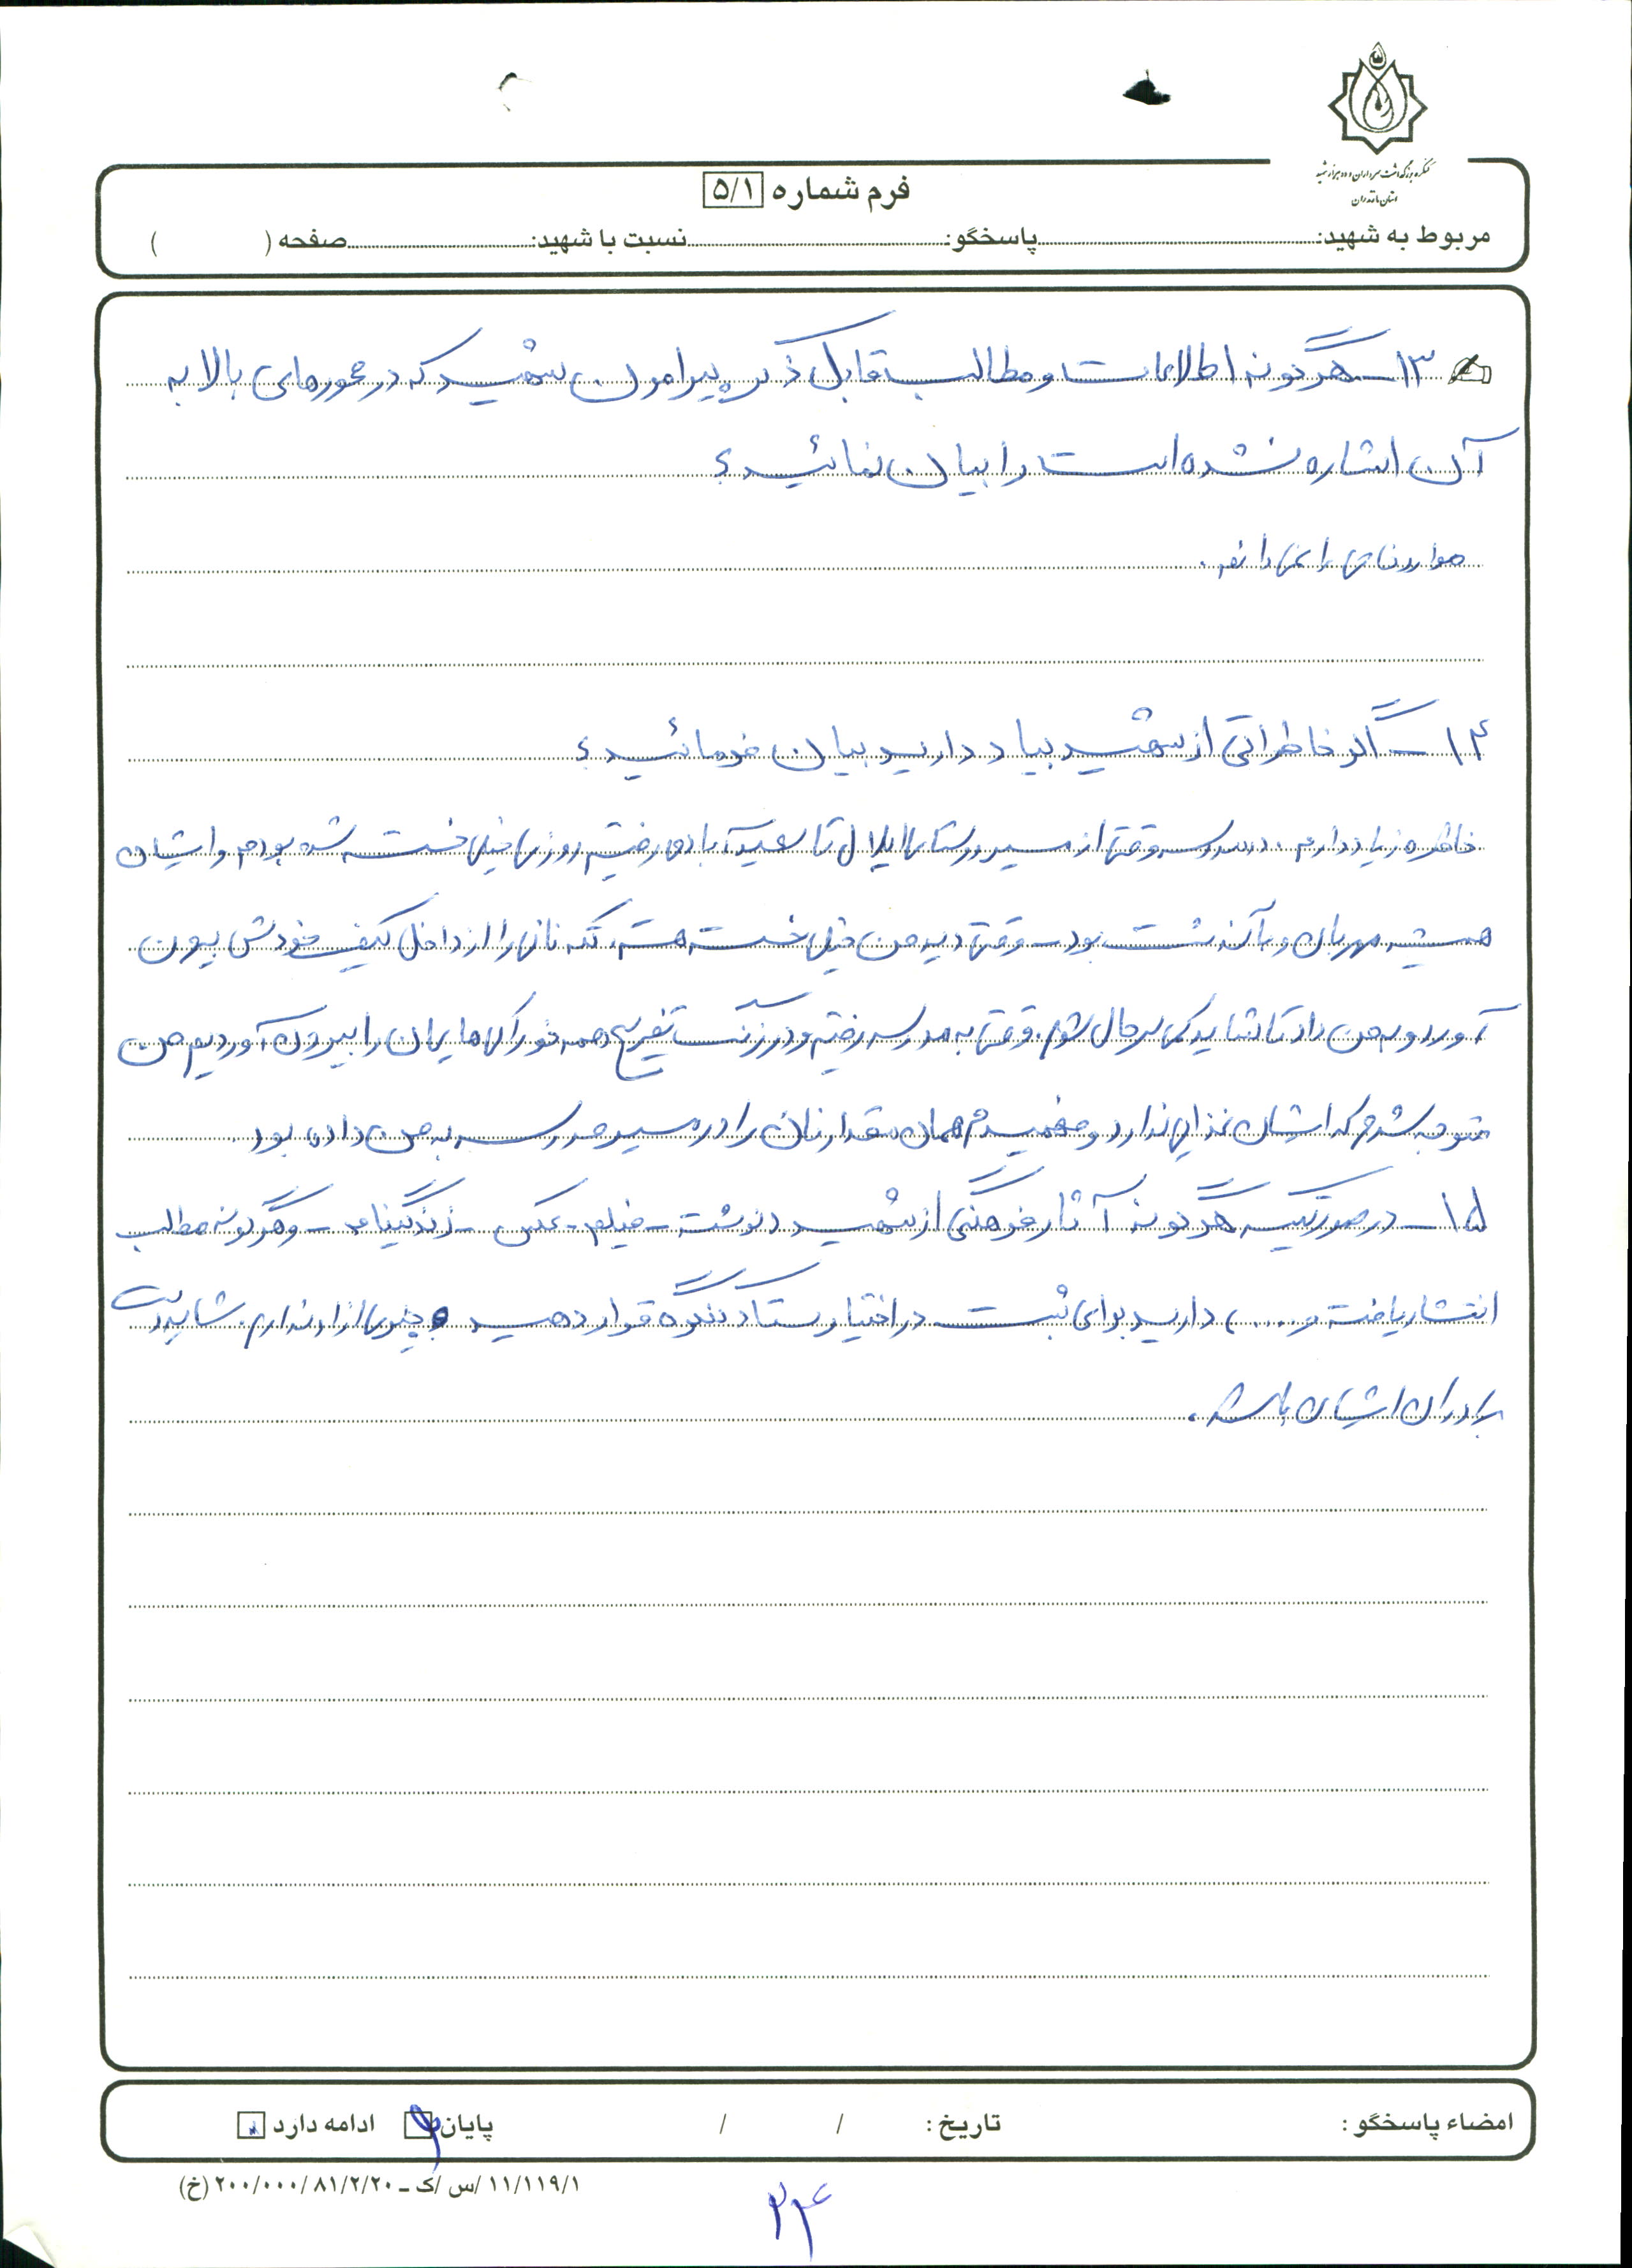 کنگره بزرگداشت سرداران و ده هزار شهید
استان مازندران
فرم شماره ۵/۱
مربوط به شهید: پاسخگو: نسبت با شهید: صفحه ( )
۱۳- هرگونه اطلاعات و مطالب قابل ذکر پیرامون شهید که در محورهای بالا به
آن اشاره نشده است را بیان نمائید؟
موارد خاصی را نمی دانم.
۱۴- اگر خاطراتی از شهید بیاد دارید بیان فرمائید؟
خاطره زیاد دارم. وقتی از مسیر روستای ایلال تا سعیدآباد می رفتیم روزی خیلی خسته شده بودم و ایشان
همیشه مهربان و با گذشت بود وقتی دید من خیلی خسته هستم تکه نانی را از داخل کیف خودش بیرون
آورد و به من داد تا شاید کمی سرحال شوم. وقتی به مدرسه رفتیم و در زنگ تفریح همه خوراکی هایمان را بیرون آوردیم من
متوجه شدم که ایشان غذایی ندارد و فهمیدم همان مقدار نان را در مسیر مدرسه به من داده بود.
۱۵- در صورتیکه هرگونه آثار فرهنگی از شهید (نوشته - فیلم - عکس - زندگینامه - و هرگونه مطالب
انتشار یافته و....) دارید برای ثبت در اختیار ستاد کنگره قرار دهید چیزی از او ندارم. شاید دست
برادران ایشان باشد.
امضاء پاسخگو : تاریخ : / / پایان ادامه دارد
۱۱/۱۱۹/۱ /س /ک - ۲۰۰/۰۰۰/۸۱/۲/۲۰ (خ)
۲۴